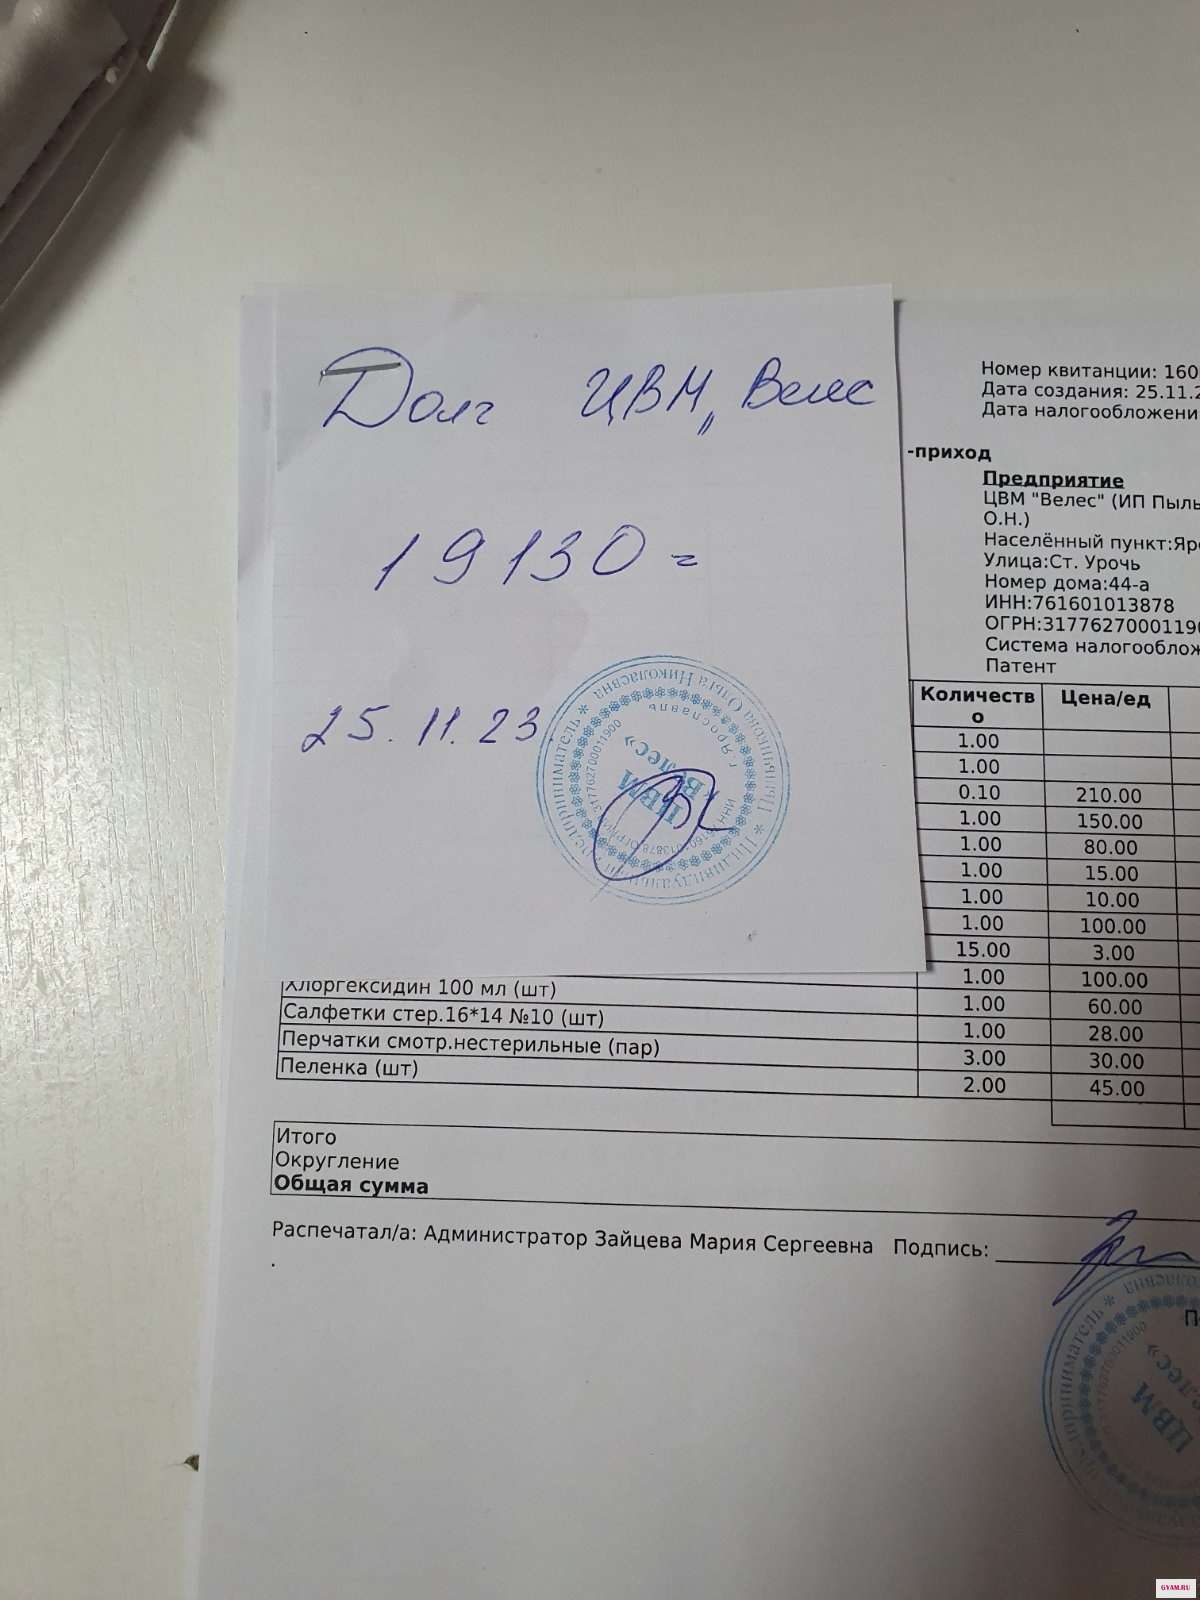 Долг ЦВМ „Велес
19130=
25.11.23.
Индивидуальный предприниматель * Пыльникова Ольга Николаевна *
г. Ярославль
ИНН 761601013878 ОГРНИП 317762700011900
ЦВМ
«Велес»
Номер квитанции: 160
Дата создания: 25.11.2
Дата налогообложени
-приход
Предприятие
ЦВМ "Велес" (ИП Пыль
О.Н.)
Населённый пункт:Яро
Улица:Ст. Урочь
Номер дома:44-а
ИНН:761601013878
ОГРН:31776270001190
Система налогооблож
Патент
Количеств
о Цена/ед
1.00
1.00
0.10 210.00
1.00 150.00
1.00 80.00
1.00 15.00
1.00 10.00
1.00 100.00
15.00 3.00
Хлоргексидин 100 мл (шт) 1.00 100.00
1.00 60.00
Салфетки стер.16*14 №10 (шт) 1.00 28.00
Перчатки смотр.нестерильные (пар) 3.00 30.00
Пеленка (шт) 2.00 45.00
Итого
Округление
Общая сумма
Распечатал/а: Администратор Зайцева Мария Сергеевна Подпись:
предприниматель *
317762700011900
ЦВМ
GYAM.RU